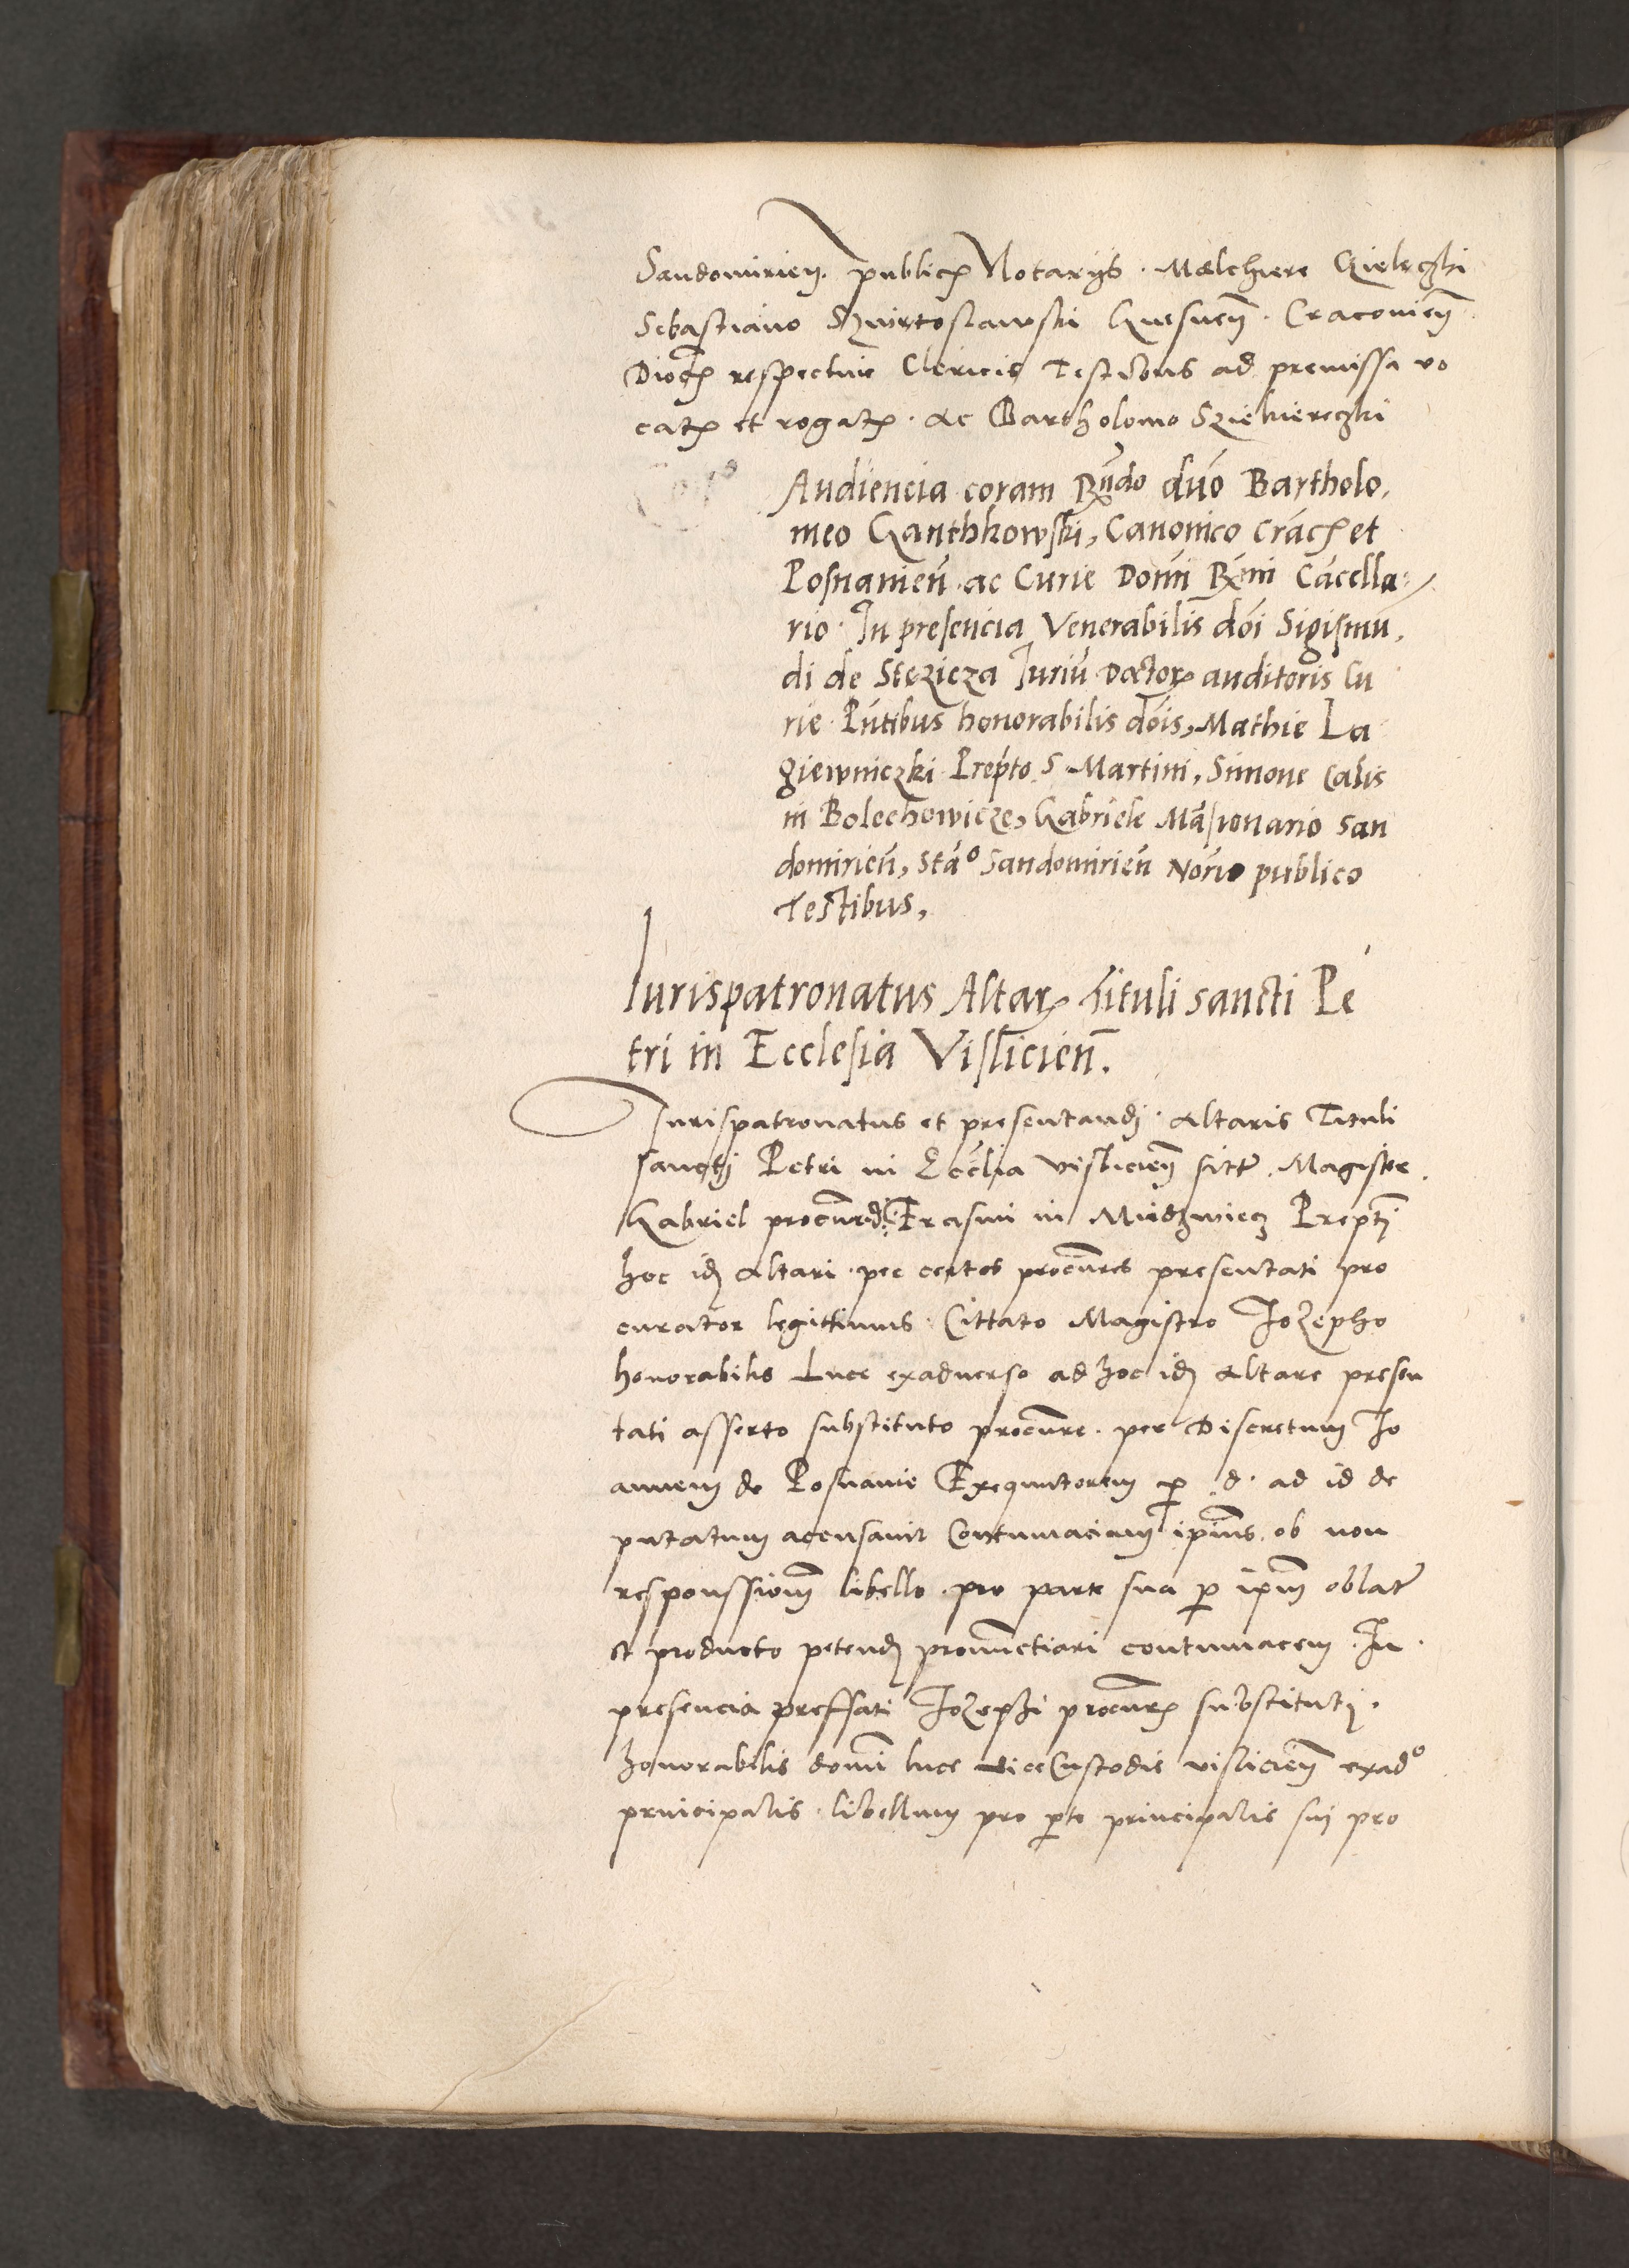 Sandomirien. publicis Notarijs. Melchiere Gieleczki
Sebastiano Swirtoslawski Gnesnen. Cracovien
Dioc respective Clericis Testibus ad premissa vo
catis et rogatis. Ac Bartholomo
Audiencia coram Rndo dno Bartholo,
meo Ganthkowski, Canonico Crac et
Posnanien ac Curie Domi Rmi Cacella:
rio. In presencia Venerabilis doi Sigismu,
di de Stezicza Iuriu Doctor auditoris Cu
rie. Pntibus honorabilis dois, Mathie La
giewniczki Prepto S Martini, Simone Calis
in Bolechowicze, Gabriele Masionario San
domirien, Sta° Sandomirien Norio publico
Testibus,
Iurispatronatus Altar Tituli sancti Pe
tri in Ecclesia Vislicien.
Iurispatronatus et presentandi. Altaris Tituli
sancti Petri in Ecclia Vislicien sitt. Magister
Gabriel procur d: Erasmi in Miedzwiecz Prepti
hoc id Altari. per certos procures presentati pro
curator legittimus. Cittato Magistro Jozepho
honorabilis Luce exadverso ad hoc id Altare presen
tati asserto substituto procure. per Discretum Jo
annem de Posnanie Exequutorem p .d. ad id de
putatum accusavit Contumaciam ipius ob non
responssionem libello. pro parte sua p ipm oblat
et producto petend pronunctiari contumacem. In.
presencia preffati Jozephi procur substituti.
honorabilis domi luce viceCustodis vislicien exad°
principalis. libellum pro pte principalis sui pro